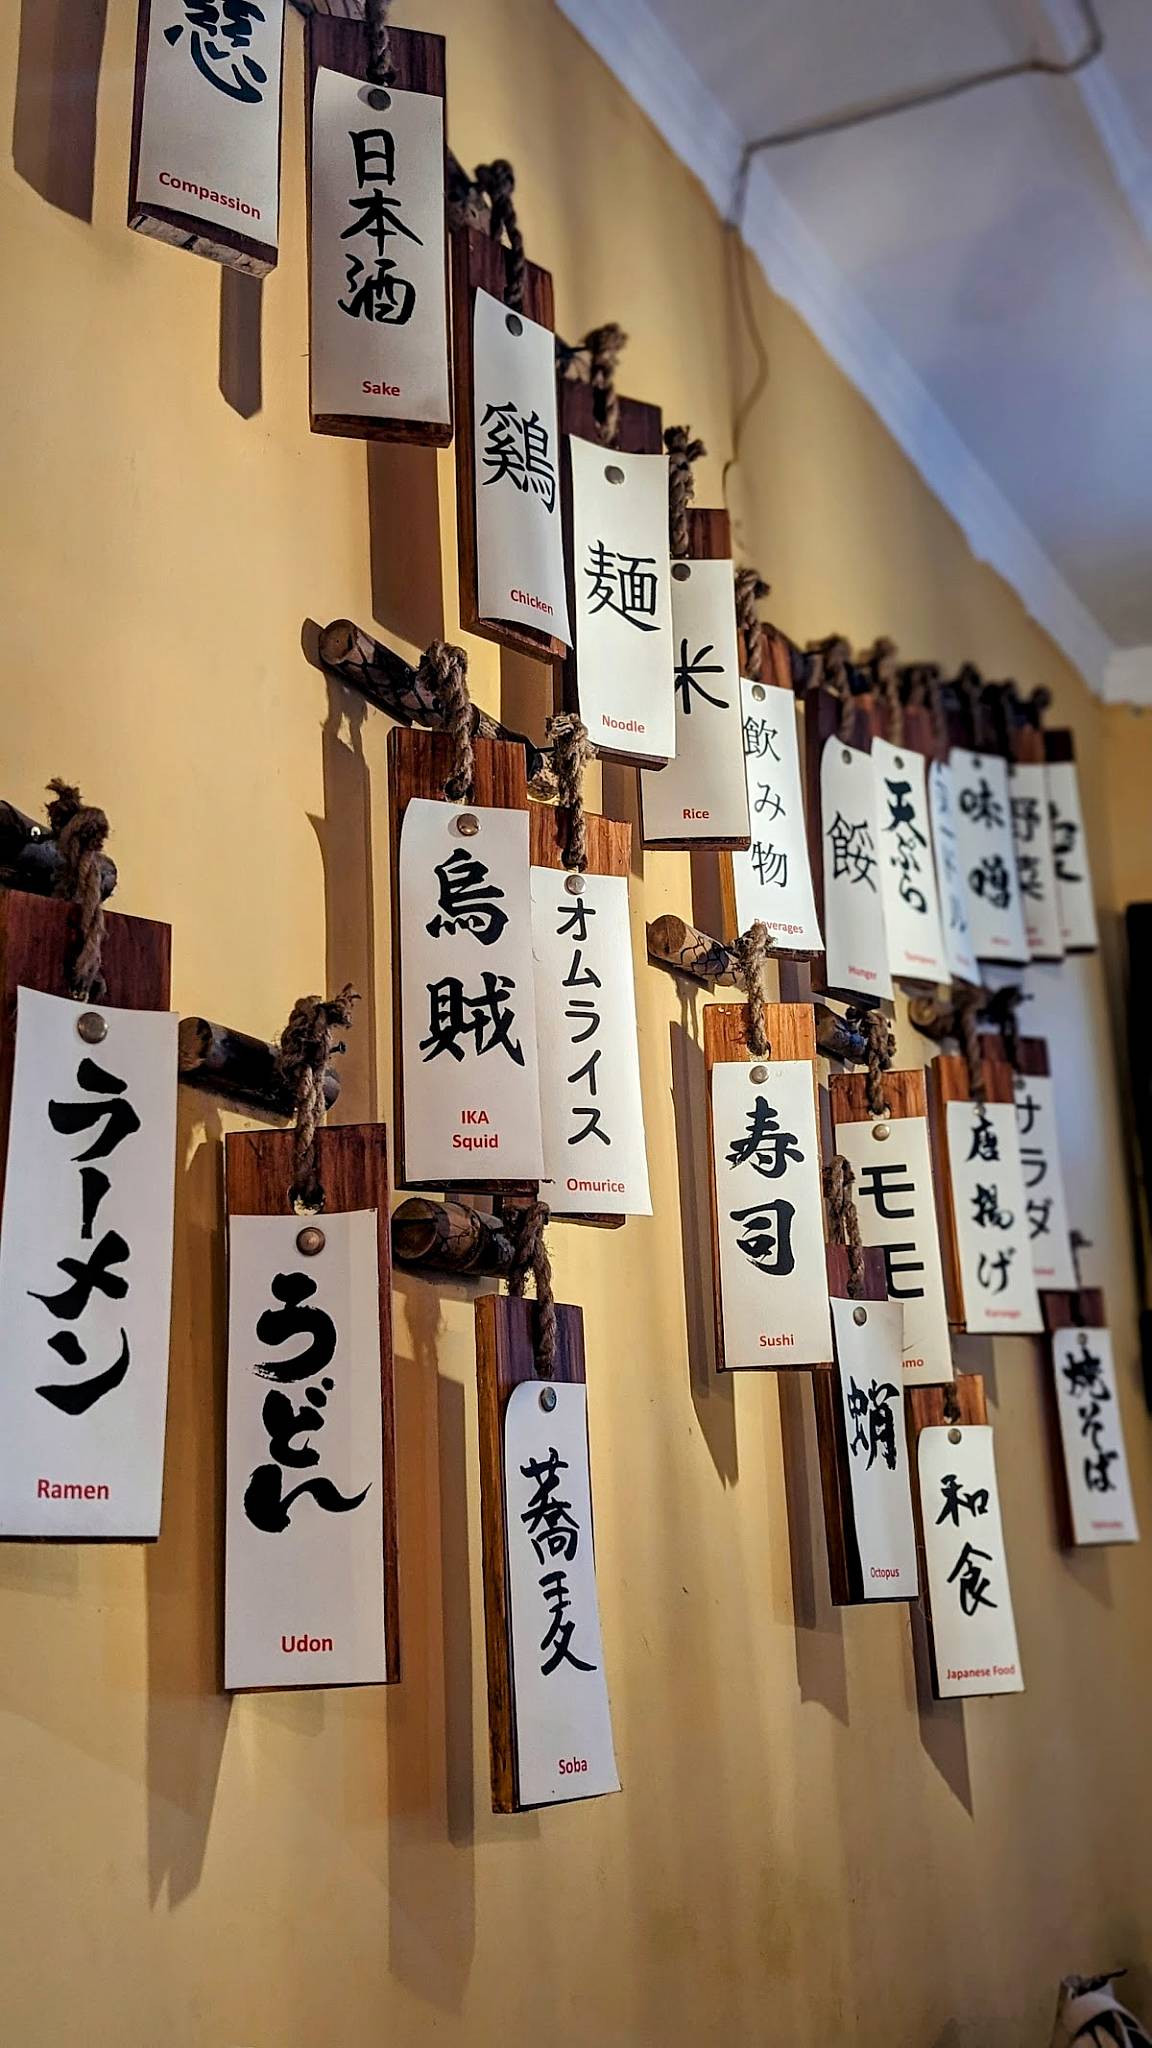 慈
Compassion
日本酒
Sake
鶏
Chicken
麺
Noodle
米
Rice
飲み物
Beverages
餒
Hunger
天ぷら
味噌
野菜
烏賊
IKA
Squid
オムライス
Omurice
寿司
Sushi
モモ
唐揚げ
サラダ
ラーメン
Ramen
うどん
Udon
蕎麦
Soba
蛸
Octopus
和食
Japanese Food
焼そば